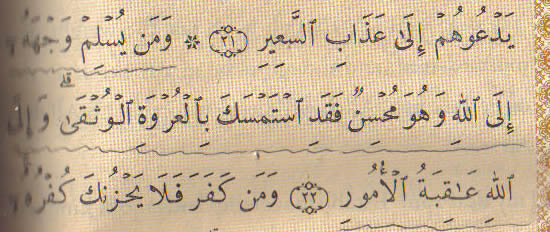 يَدْعُوهُمْ إِلَىٰ عَذَابِ ٱلسَّعِيرِ ﴿٢١﴾ ۞ وَمَن يُسْلِمْ وَجْهَهُۥٓ
إِلَى ٱللَّهِ وَهُوَ مُحْسِنٌ فَقَدِ ٱسْتَمْسَكَ بِٱلْعُرْوَةِ ٱلْوُثْقَىٰ ۗ وَإِلَى
ٱللَّهِ عَـٰقِبَةُ ٱلْأُمُورِ ﴿٢٢﴾ وَمَن كَفَرَ فَلَا يَحْزُنكَ كُفْرُهُۥٓ